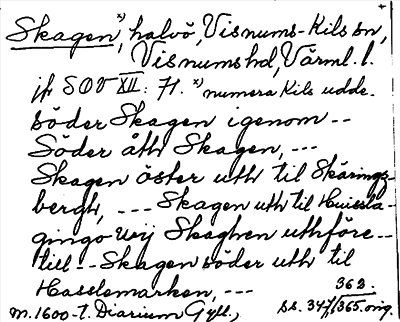 Skagen x), halvö, Visnums-Kils sn,
Visnums hd, Värml. l.
jfr SOV XII: 71. x) numera Kils udde.
söder Skagen igenom --
Söder åth Skagen, ---
Skagen öster uth til Skärings-
bergh, --- Skagen uth til Huissla-
gingo wij Skaghen uthföre--
till -- Skagen söder uth til
Hasslemarken, ---
m. 1600-t. Diarium Gyll.,
363.
ss. 347/365. orig.